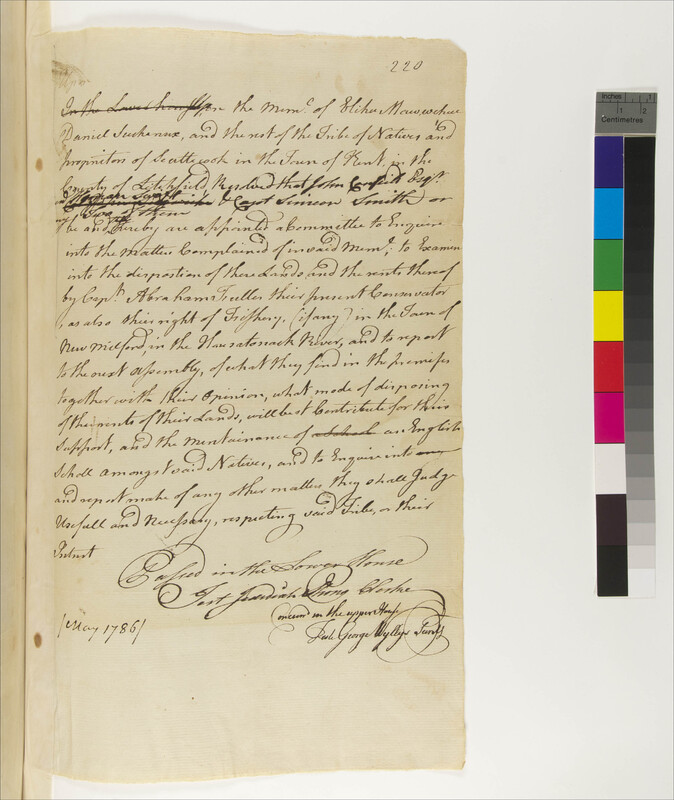 220
In the Lower house Upon the Mem.l of Elihu Mauwehue
Daniel Suckenux, and the rest of the Tribe of Natives and
Proprietors of Scattecook in the Town of Kent, in the
County of Litchfield Resolved that John Esqr.
& Capt Simeon Smith or
any Two of them
be and hereby are appointed a Committee to Enquire
into the Matters Complained of in said Mem.l, to Examen
into the dispostion of there Lands, and the rents thereof
by Capt. Abraham Fuller their present Conservator
, as also their right of Fishery, (if any) in the Town of
New Milford, in the Housatonack River, and to report
to the next Assembly, of what they find in the premises
together with their Opinion, what mode of disposing
of the rents of their Lands, will best Contribute for their
Support, and the Mentainance of a School an English
Scholl amongst said Natives, and to Enquire into any
and report make of any other matters they shall Judge
Usefull and Necessary, respecting said Tribe, or their
Intrest
Passed in the Lower House
Test Jedediah Strong Clerke
Concurd in the upper House
Test George Wyllys Secrety
[May 1786]
inches 1
1 2
Centimetres